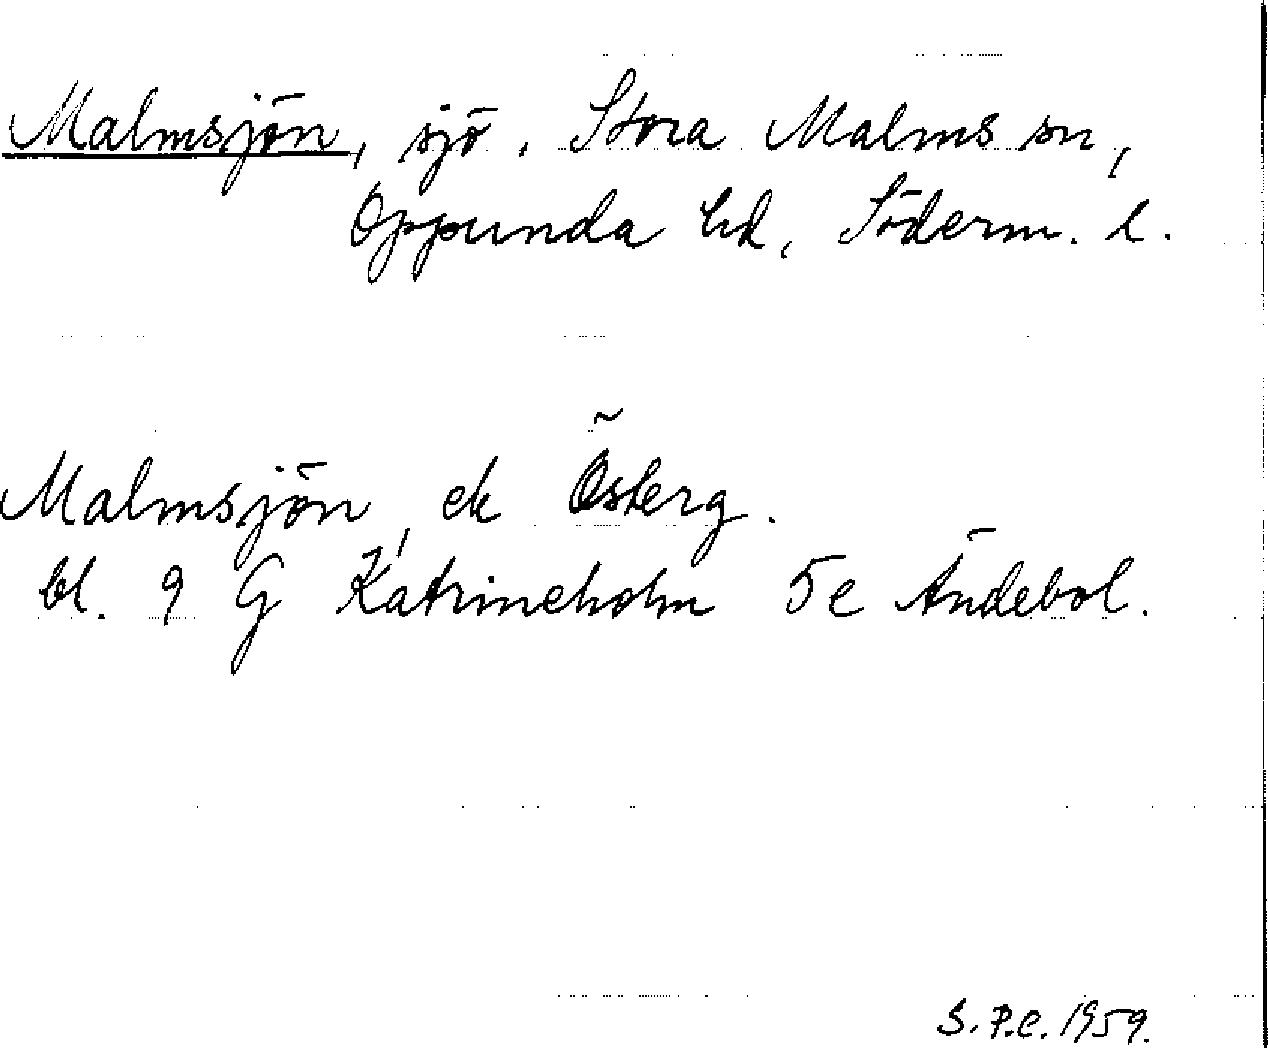 Malmsjön, sjö. Stora Malms sn,
Oppunda hd, Söderm. l.
Malmsjön, ek Österg.
bl. 9 G Katrineholm 5e Ändebol.
S.P.C. 1959.